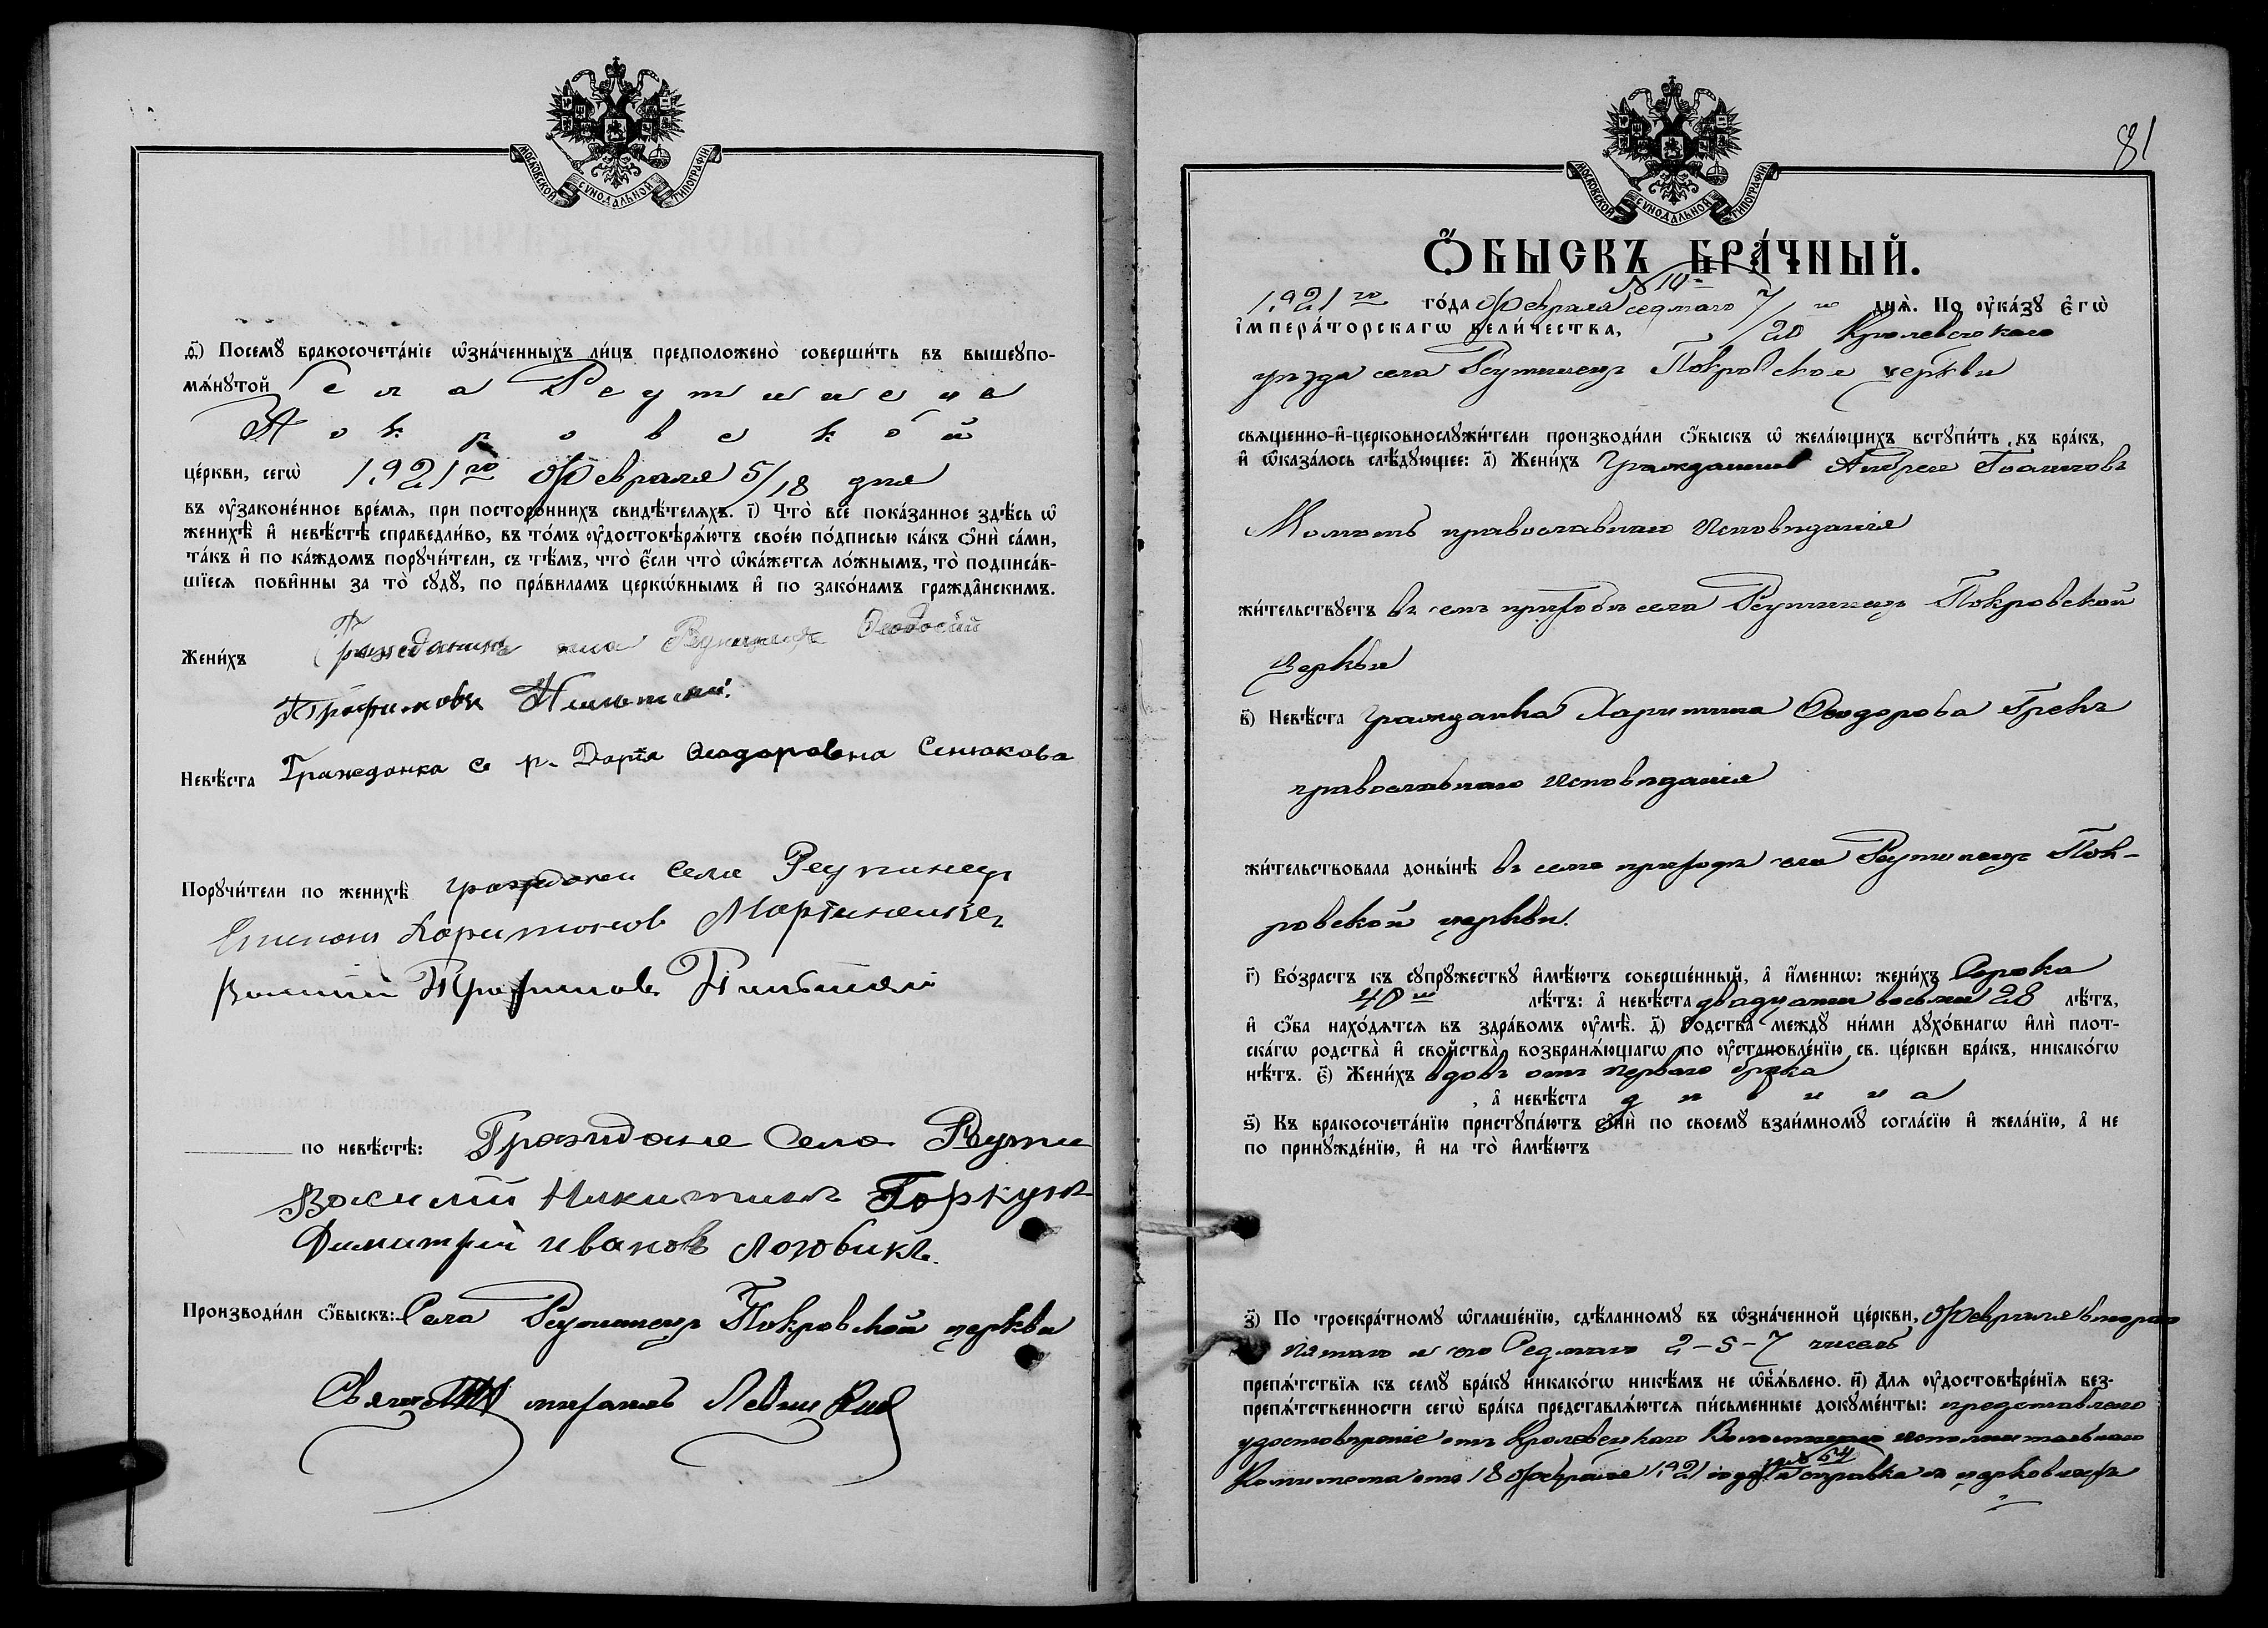 МОСКОВСКОЙ СѴНОДАЛЬНОЙ ТИПОГРАФІИ
ѳ҃) Посемꙋ бракосочета́нїе ѡ҆зна́ченныхъ ли́цъ предположено̀ соверши́ть въ вышеꙋпо-
мѧ́нꙋтой Села Реутинецъ
Покровской
це́ркви, сегѡ̀ 1921го Февраля 5/18 дня
въ ᲂу҆законе́нное вре́мѧ, при посторо́ннихъ свидѣ́телѧхъ. і҃) Что̀ всѐ пока́занное здѣ́сь ѡ҆
женихѣ̀ и҆ невѣ́стѣ справедли́во, въ то́мъ ᲂу҆достовѣрѧ́ютъ свое́ю по́дписью ка́къ ѻ҆ни̑ са́ми,
та́къ и҆ по ка́ждомъ порꙋчи́тели, съ тѣ́мъ, что̀ є҆́сли что̀ ѡ҆ка́жетсѧ ло́жнымъ, то̀ подписа́в-
шїесѧ пови̑нны за то̀ сꙋдꙋ̀, по пра́виламъ церкѡ́внымъ и҆ по зако́намъ гражда̑нскимъ.
Жени́хъ Гражданинъ села Реутинецъ Ѳеодосій
Трофимовъ
Невѣ́ста Гражданка с. Р. Дарія Ѳеодоровна Сенюкова
Порꙋчи́тели по женихѣ̀ граждани села Реутинец
Харитонов Мартиненко
Трофимовъ
по невѣ́стѣ: Граждане Села Рути
Василій Никитинъ Горкунъ
Димитрій Иванов Лозовикъ.
Производи́ли ѻ҆́быскъ: Села Реутинецъ Покровской церкви
Левицкій
81
МОСКОВСКОЙ СѴНОДАЛЬНОЙ ТИПОГРАФІИ
Ѻ҆́БЫСКЪ БРА́ЧНЫЙ.
№ 10
1921го го́да Февраля седмаго 7/ го днѧ̀. По ᲂу҆ка́зꙋ є҆гѡ̀
і҆мпера́торскагѡ вели́чества, /20 Кролевецкаго
уѣзда села Реутинецъ Покровской церкви
свѧще́нно-и҆-церковнослꙋжи́тели производи́ли ѻ҆́быскъ ѡ҆ жела́ющихъ встꙋпи́ть въ бра́къ,
и҆ ѡ҆каза́лось слѣ́дꙋющее: а҃) Жени́хъ Гражданинъ Андрей Іоанновъ
Момотъ православнаго исповѣданія
жи́тельствꙋетъ въ семъ приходѣ села Реутинецъ Покровской
церкви
в҃) Невѣ́ста гражданка Харитина Ѳеодорова Грекъ
православнаго исповѣданія
жи́тельствовала доны́нѣ въ семъ приходѣ села Реутинецъ Пок-
ровской церкви.
г҃) Во́зрастъ къ сꙋпрꙋ́жествꙋ и҆мѣ́ютъ соверше́нный, а҆ и҆́меннѡ: жени́хъ Сорока
40 лѣ́тъ: а҆ невѣ́ста двадцати восьми 28 лѣ́тъ,
и҆ ѻ҆́ба нахо́дѧтсѧ въ здра́вомъ ᲂу҆мѣ̀. д҃) Родства̀ междꙋ̀ ни́ми дꙋхо́внагѡ и҆лѝ плот-
ска́гѡ родства̀ и҆ свойства̀, возбранѧ́ющагѡ по ᲂу҆становле́нїю св. це́ркви бра́къ, никако́гѡ
нѣ́тъ. є҃) Жени́хъ вдовъ отъ перваго брака
, а҆ невѣ́ста дѣвица
ѕ҃) Къ бракосочета́нїю пристꙋпа́ютъ ѻ҆нѝ по своемꙋ̀ взаи́мномꙋ согла́сїю и҆ жела́нїю, а҆ не
по принꙋжде́нїю, и҆ на то̀ и҆мѣ́ютъ
з҃) По троекра́тномꙋ ѡ҆глаше́нїю, сдѣ́ланномꙋ въ ѡ҆зна́ченной це́ркви, Февраля втораго
пятаго и седмаго 2-5-7 чиселъ
препѧ́тствїѧ къ семꙋ̀ бра́кꙋ никако́гѡ никѣ́мъ не ѡ҆б̾ѧ́влено. и҃) Длѧ ᲂу҆достовѣре́нїѧ без-
препѧ́тственности сегѡ̀ бра́ка представлѧ́ютсѧ пи́сьменные докꙋме́нты: представлено
удостовѣреніе отъ Кролевецкаго Волостнаго исполнительнаго
Комитета отъ 18 Февраля 1921 года № 64 и справка